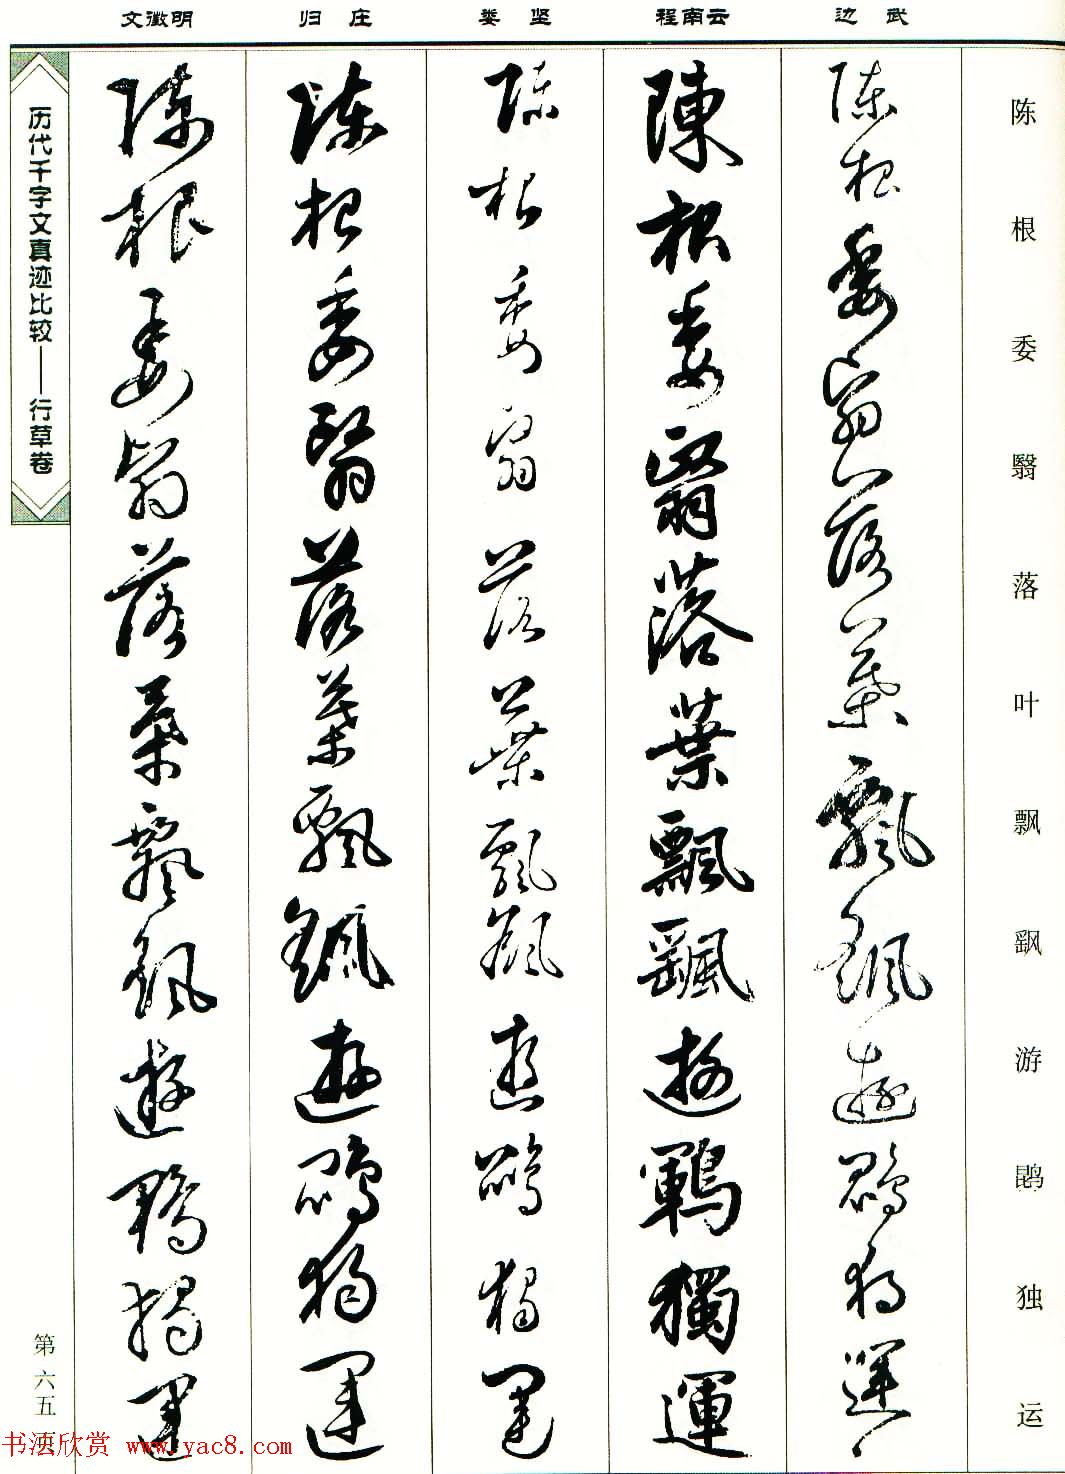 文徵明 归庄 娄坚 程南云 边武
陈根委翳落叶飘飖游鹍独运
陳根委翳落葉飄颻遊鵾獨運
陳根委翳落葉飄颻遊鶤獨運
陳根委翳落葉飄颻遊鵾獨運
陳根委翳落葉飄颻遊鵾獨運
陳根委翳落葉飄颻遊鶤獨運
历代千字文真迹比较——行草卷
第六五页
书法欣赏 www.yac8.com